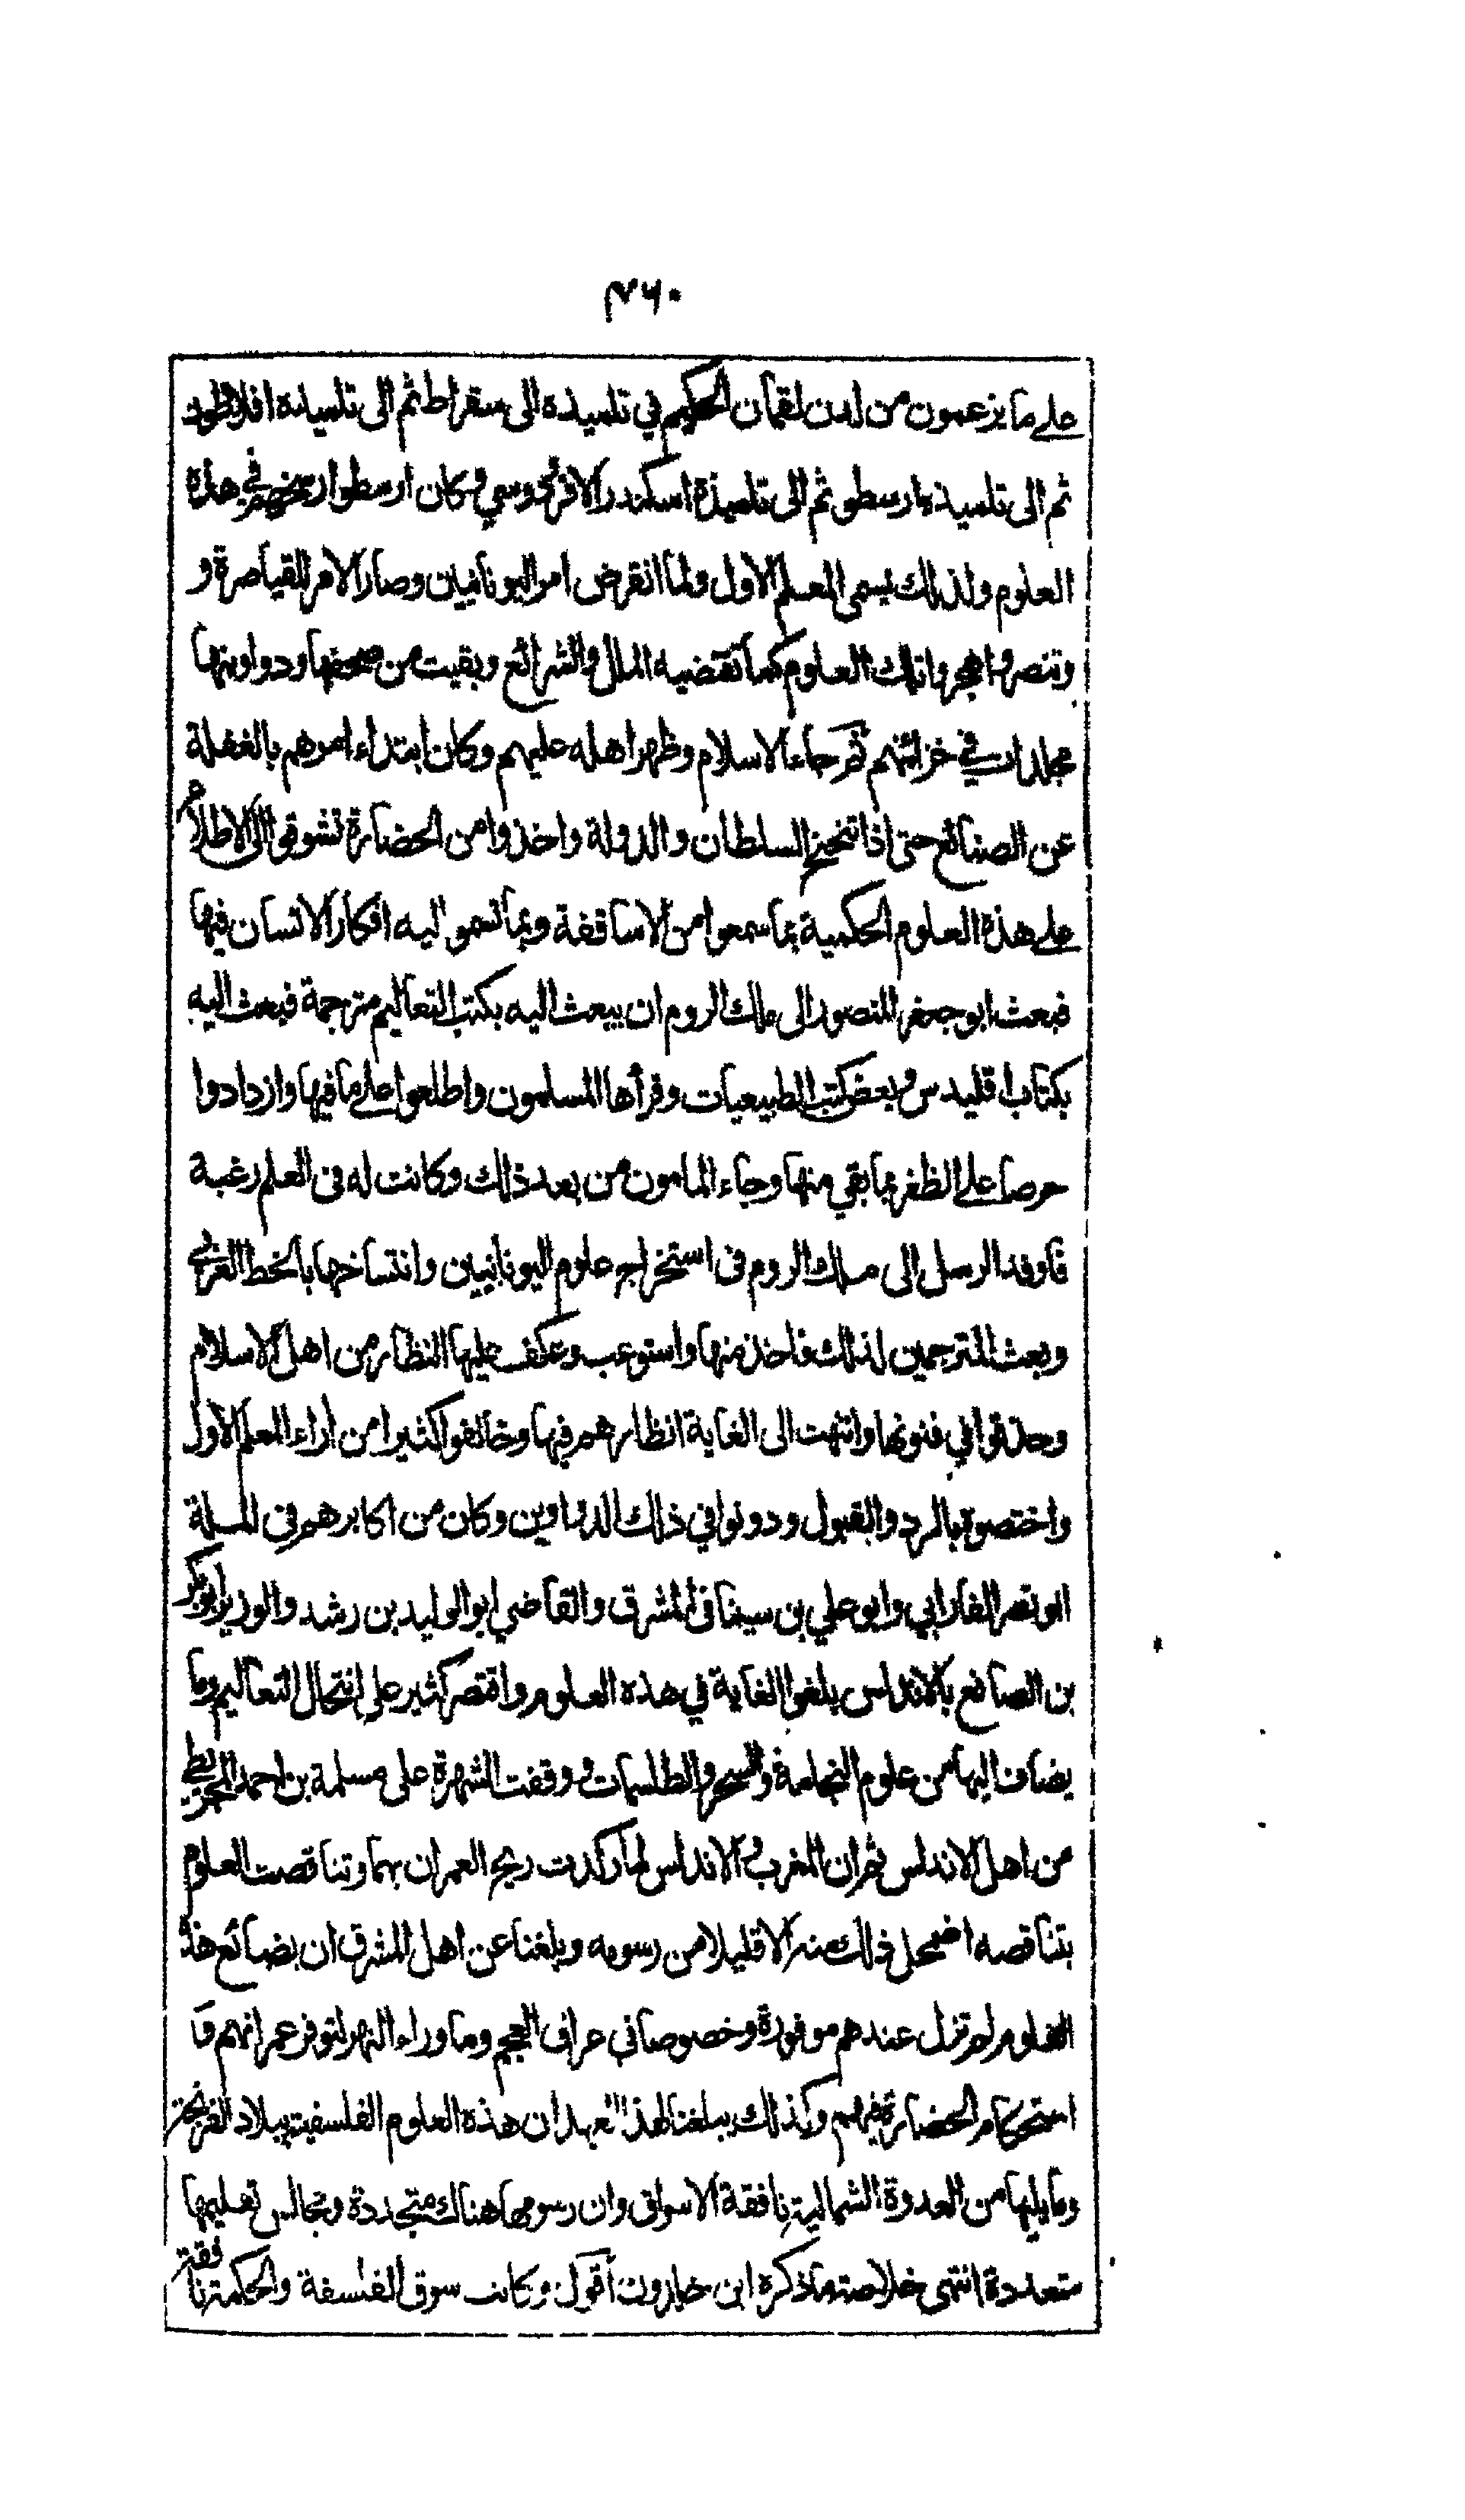 ٣٦٠
على ما يزعمون من لدن لقمان الحكيم في تلميذه الى سقراط ثم الى تلميذه افلاطون
ثم الى تلميذه ارسطو ثم الى تلميذه اسكندر الافردوسي وكان ارسطو ارسخهم في هذه
العلوم ولذلك يسمى المعلم الاول ولما انقرض امر اليونانيان وصار الامر للقياصرة و
وتنصروا هجروا تلك العلوم كما تقتضيه الملل والشرائع وبقيت من صحفها ودواوينها
مجلدات في خزائنهم ثم جاء الاسلام وظهر اهله عليهم وكان ابتداء امرهم بالغفلة
عن الصنائع حتى اذا تنحنح السلطان والدولة واخذوا من الحضارة تشوقوا الى الاطلاع
على هذه العلوم الحكمية بما سمعوا من الاساقفة وبما تسمو اليه افكار الانسان فيها
فبعث ابو جعفر المنصور الى ملك الروم ان يبعث اليه بكتب التعاليم مترجمة فبعث اليه
بكتاب اقليدس وبعض كتب الطبيعيات وقرأها المسلمون واطلعوا على ما فيها وازدادوا
حرصا على الظفر بما بقي منها وجاء المامون من بعد ذلك وكانت له في العلم رغبة
فاوفد الرسل الى ملك الروم في استخراج علوم اليونانيين وانتساخها بالخط العربي
وبعث المترجمين لذلك فاخذ منها واستوعب وعكف عليها النظار من اهل الاسلام
وحذقوا في فنونها وانتهت الى الغاية انظارهم فيها وخالفوا كثيرا من اراء المعلم الاول
واختصوه بالرد والقبول ودونوا في ذلك الدواوين وكان من اكابرهم في الملة
ابو نصر الفارابي وابو علي بن سينا في المشرق والقاضي ابو الوليد بن رشد والوزير ابو بكر
بن الصائغ بالاندلس بلغوا الغاية في هذه العلوم واقتصر كثير على انتحال التعاليم وما
يضاف اليها من علوم النجامة والسحر والطلسمات ووقفت الشهرة على مسلمة بن احمد المجريطي
من اهل الاندلس ثم ان المغرب والاندلس لما ركدت ريح العمران بهما وتناقصت العلوم
بتناقصه اضمحل ذلك منه الا قليلا من رسومه ويبلغنا عن اهل المشرق ان بضائع هذه
العلوم لم تزل عندهم موفورة وخصوصا في عراق العجم وما وراء النهر لتوفر عمرانهم و
استحكام الحضارة فيهم وكذلك يبلغنا لهذا العهد ان هذه العلوم الفلسفية ببلاد الفرنجة
وما يليها من العدوة الشمالية نافقة الاسواق وان رسومها هناك متجددة ومجالس تعليمها
متعددة انتهى خلاصة ما ذكره ابن خلدون اقول وكانت سوق الفلسفة والحكمة نافقة